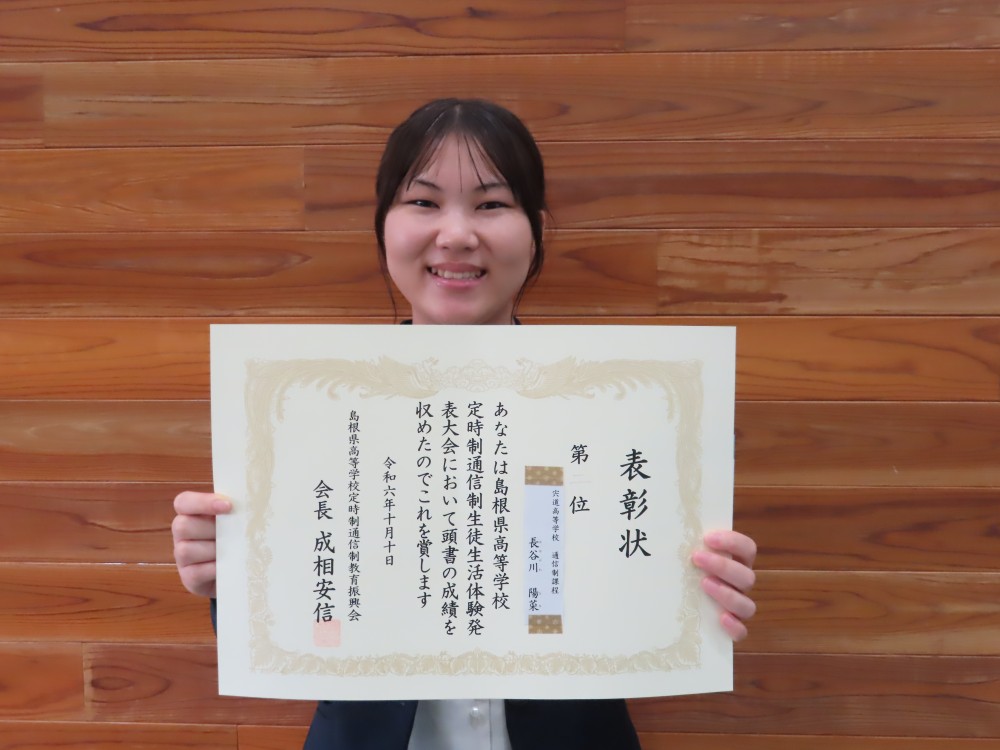 表彰状
第 位
宍道高等学校 通信制課程
長谷川 陽菜
あなたは島根県高等学校
定時制通信制生徒生活体験発
表大会において頭書の成績を
収めたのでこれを賞します
令和六年十月十日
島根県高等学校定時制通信制教育振興会
会長 成相安信